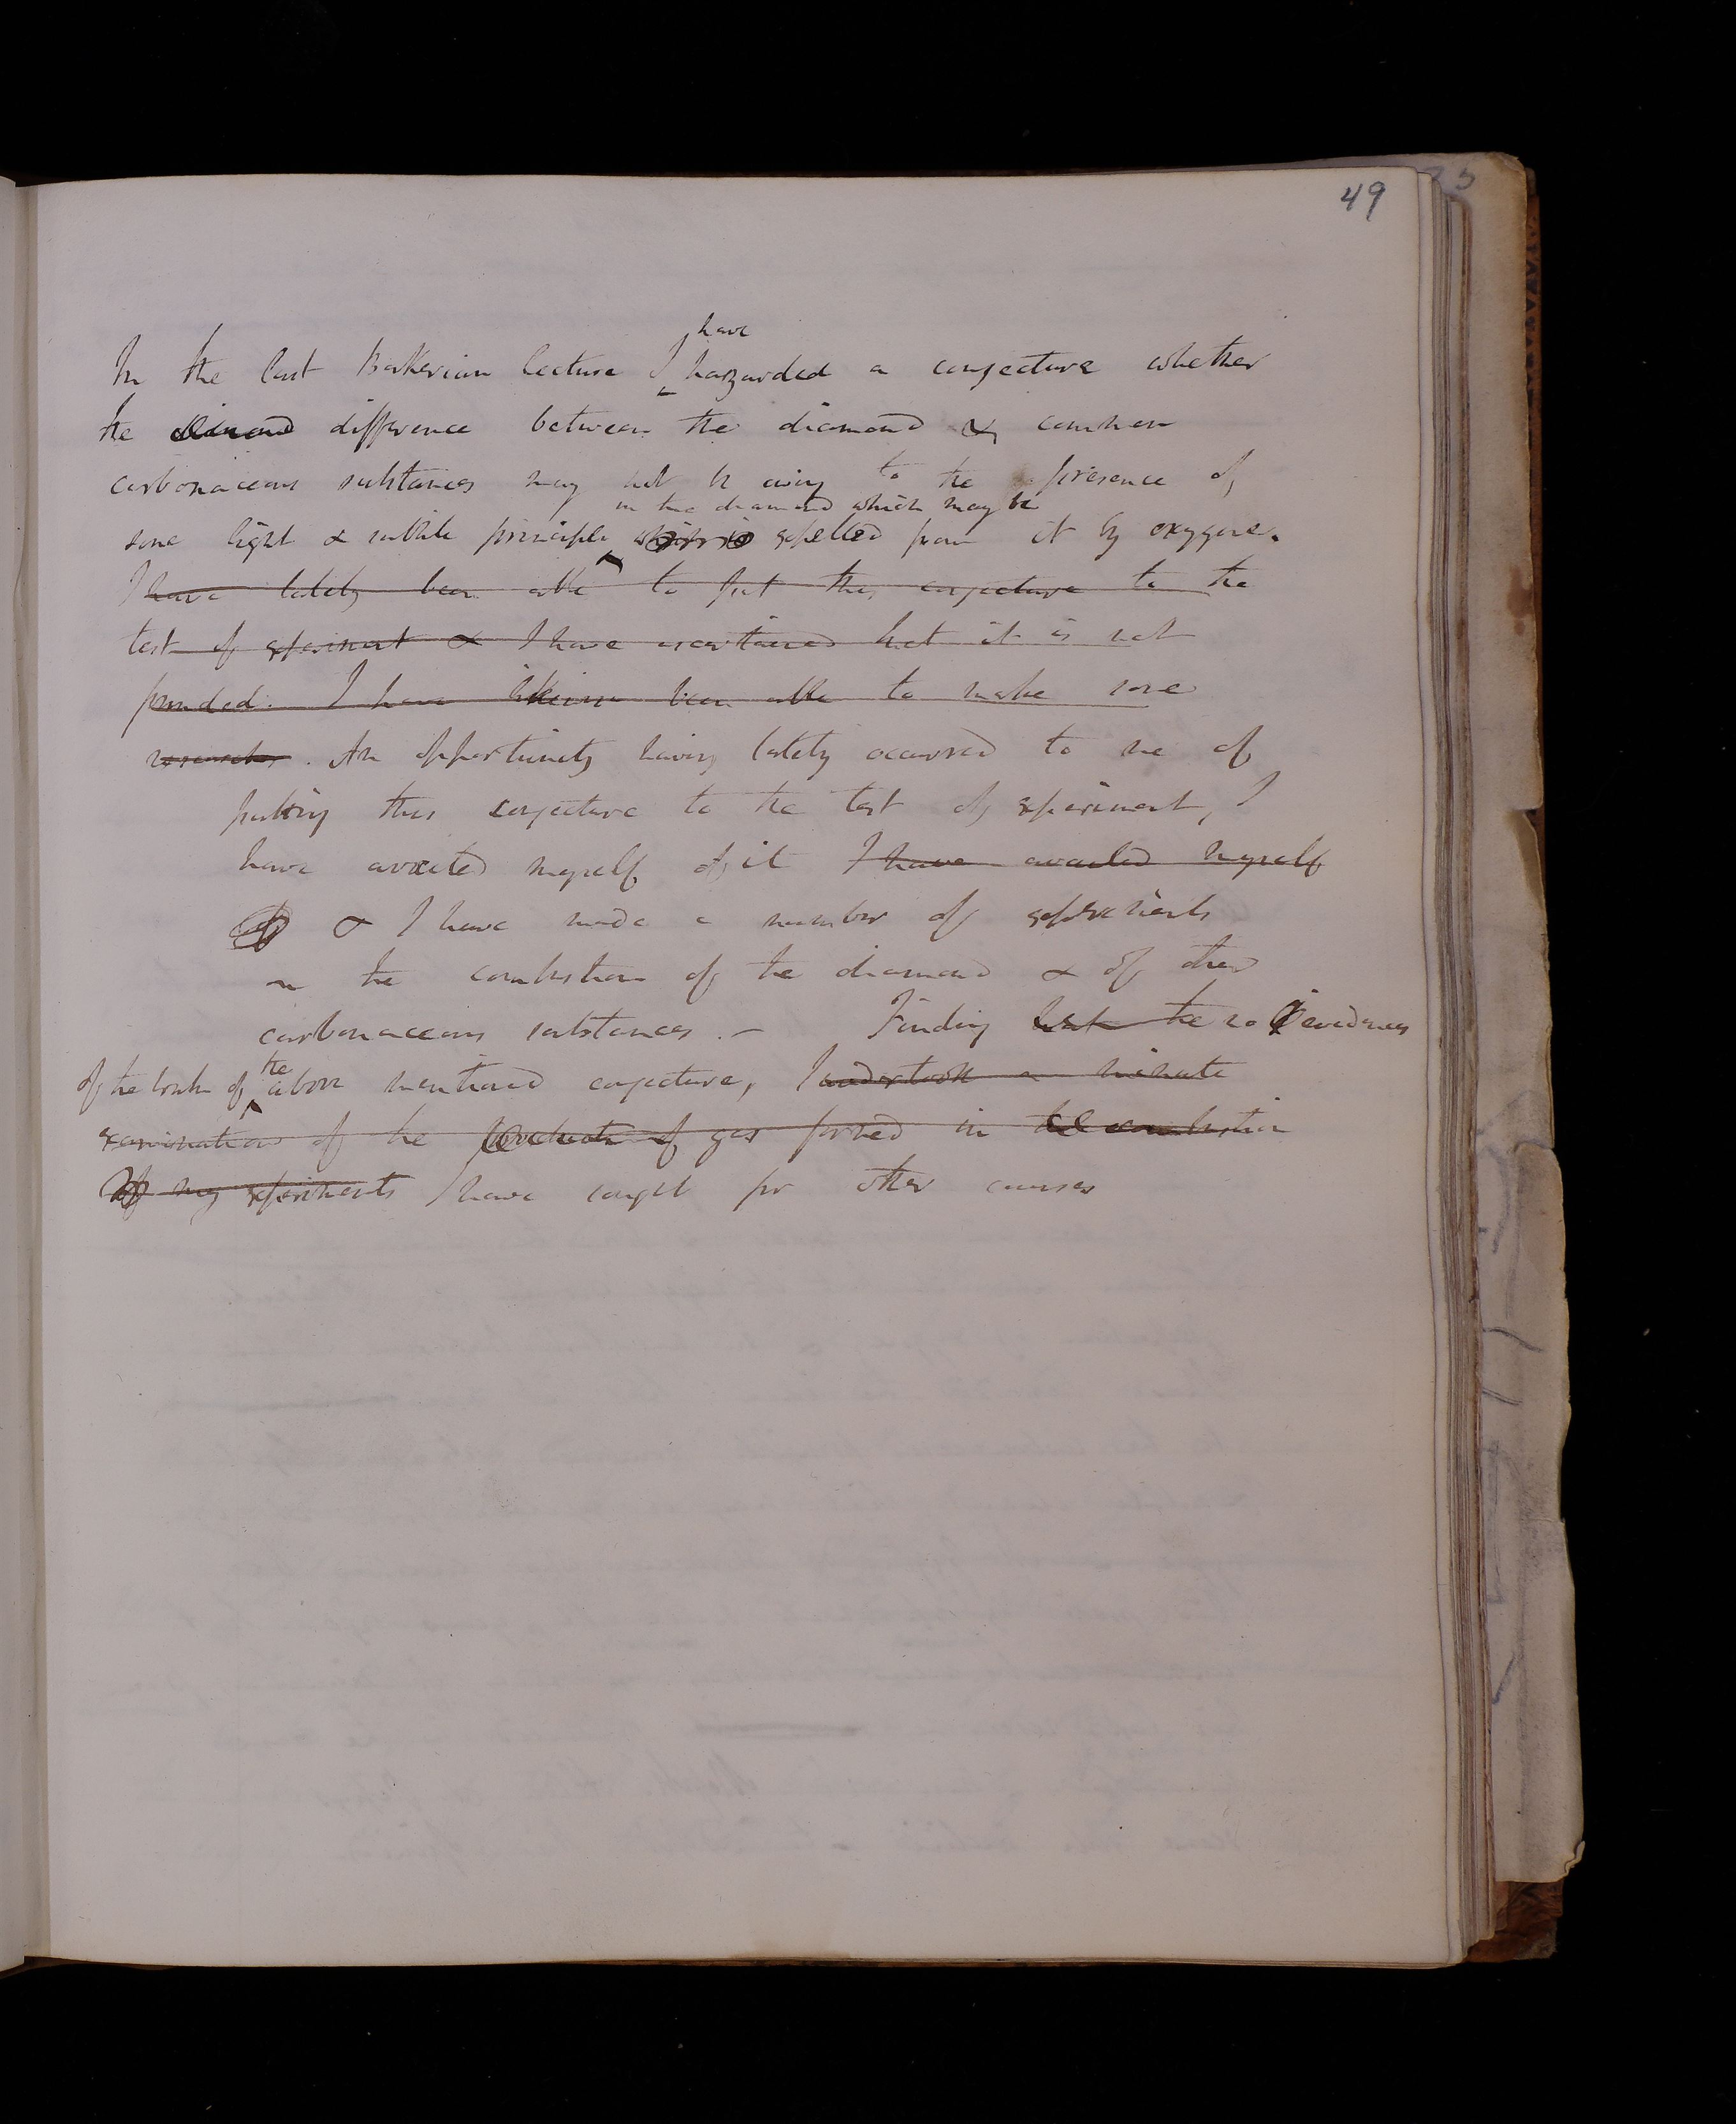 49
have
In the last Bakerian lecture I hazarded a conjecture whether
the diamond difference between the diamond & common
carbonaceous substances may not be owing to the presence of
in the diamond which may be
some light & subtile principle which is expelled from it by oxygene.
I have lately been able to put this conjecture to the
test of experiment & I have ascertained that it is not
founded. I have likewise been able to make some
researches. An opportunity having lately occurred to me of
putting this conjecture to the test of experiment, I
have availed myself of it I have availed myself
of & I have made a number of experiments
on the combustion of the diamond & of other
carbonaceous substances. – Finding that the no evidences
the
of the truth of above mentioned conjecture, I undertook a minute
examination of the products of gas formed in the combustion
of my experiments I have sought for other causes